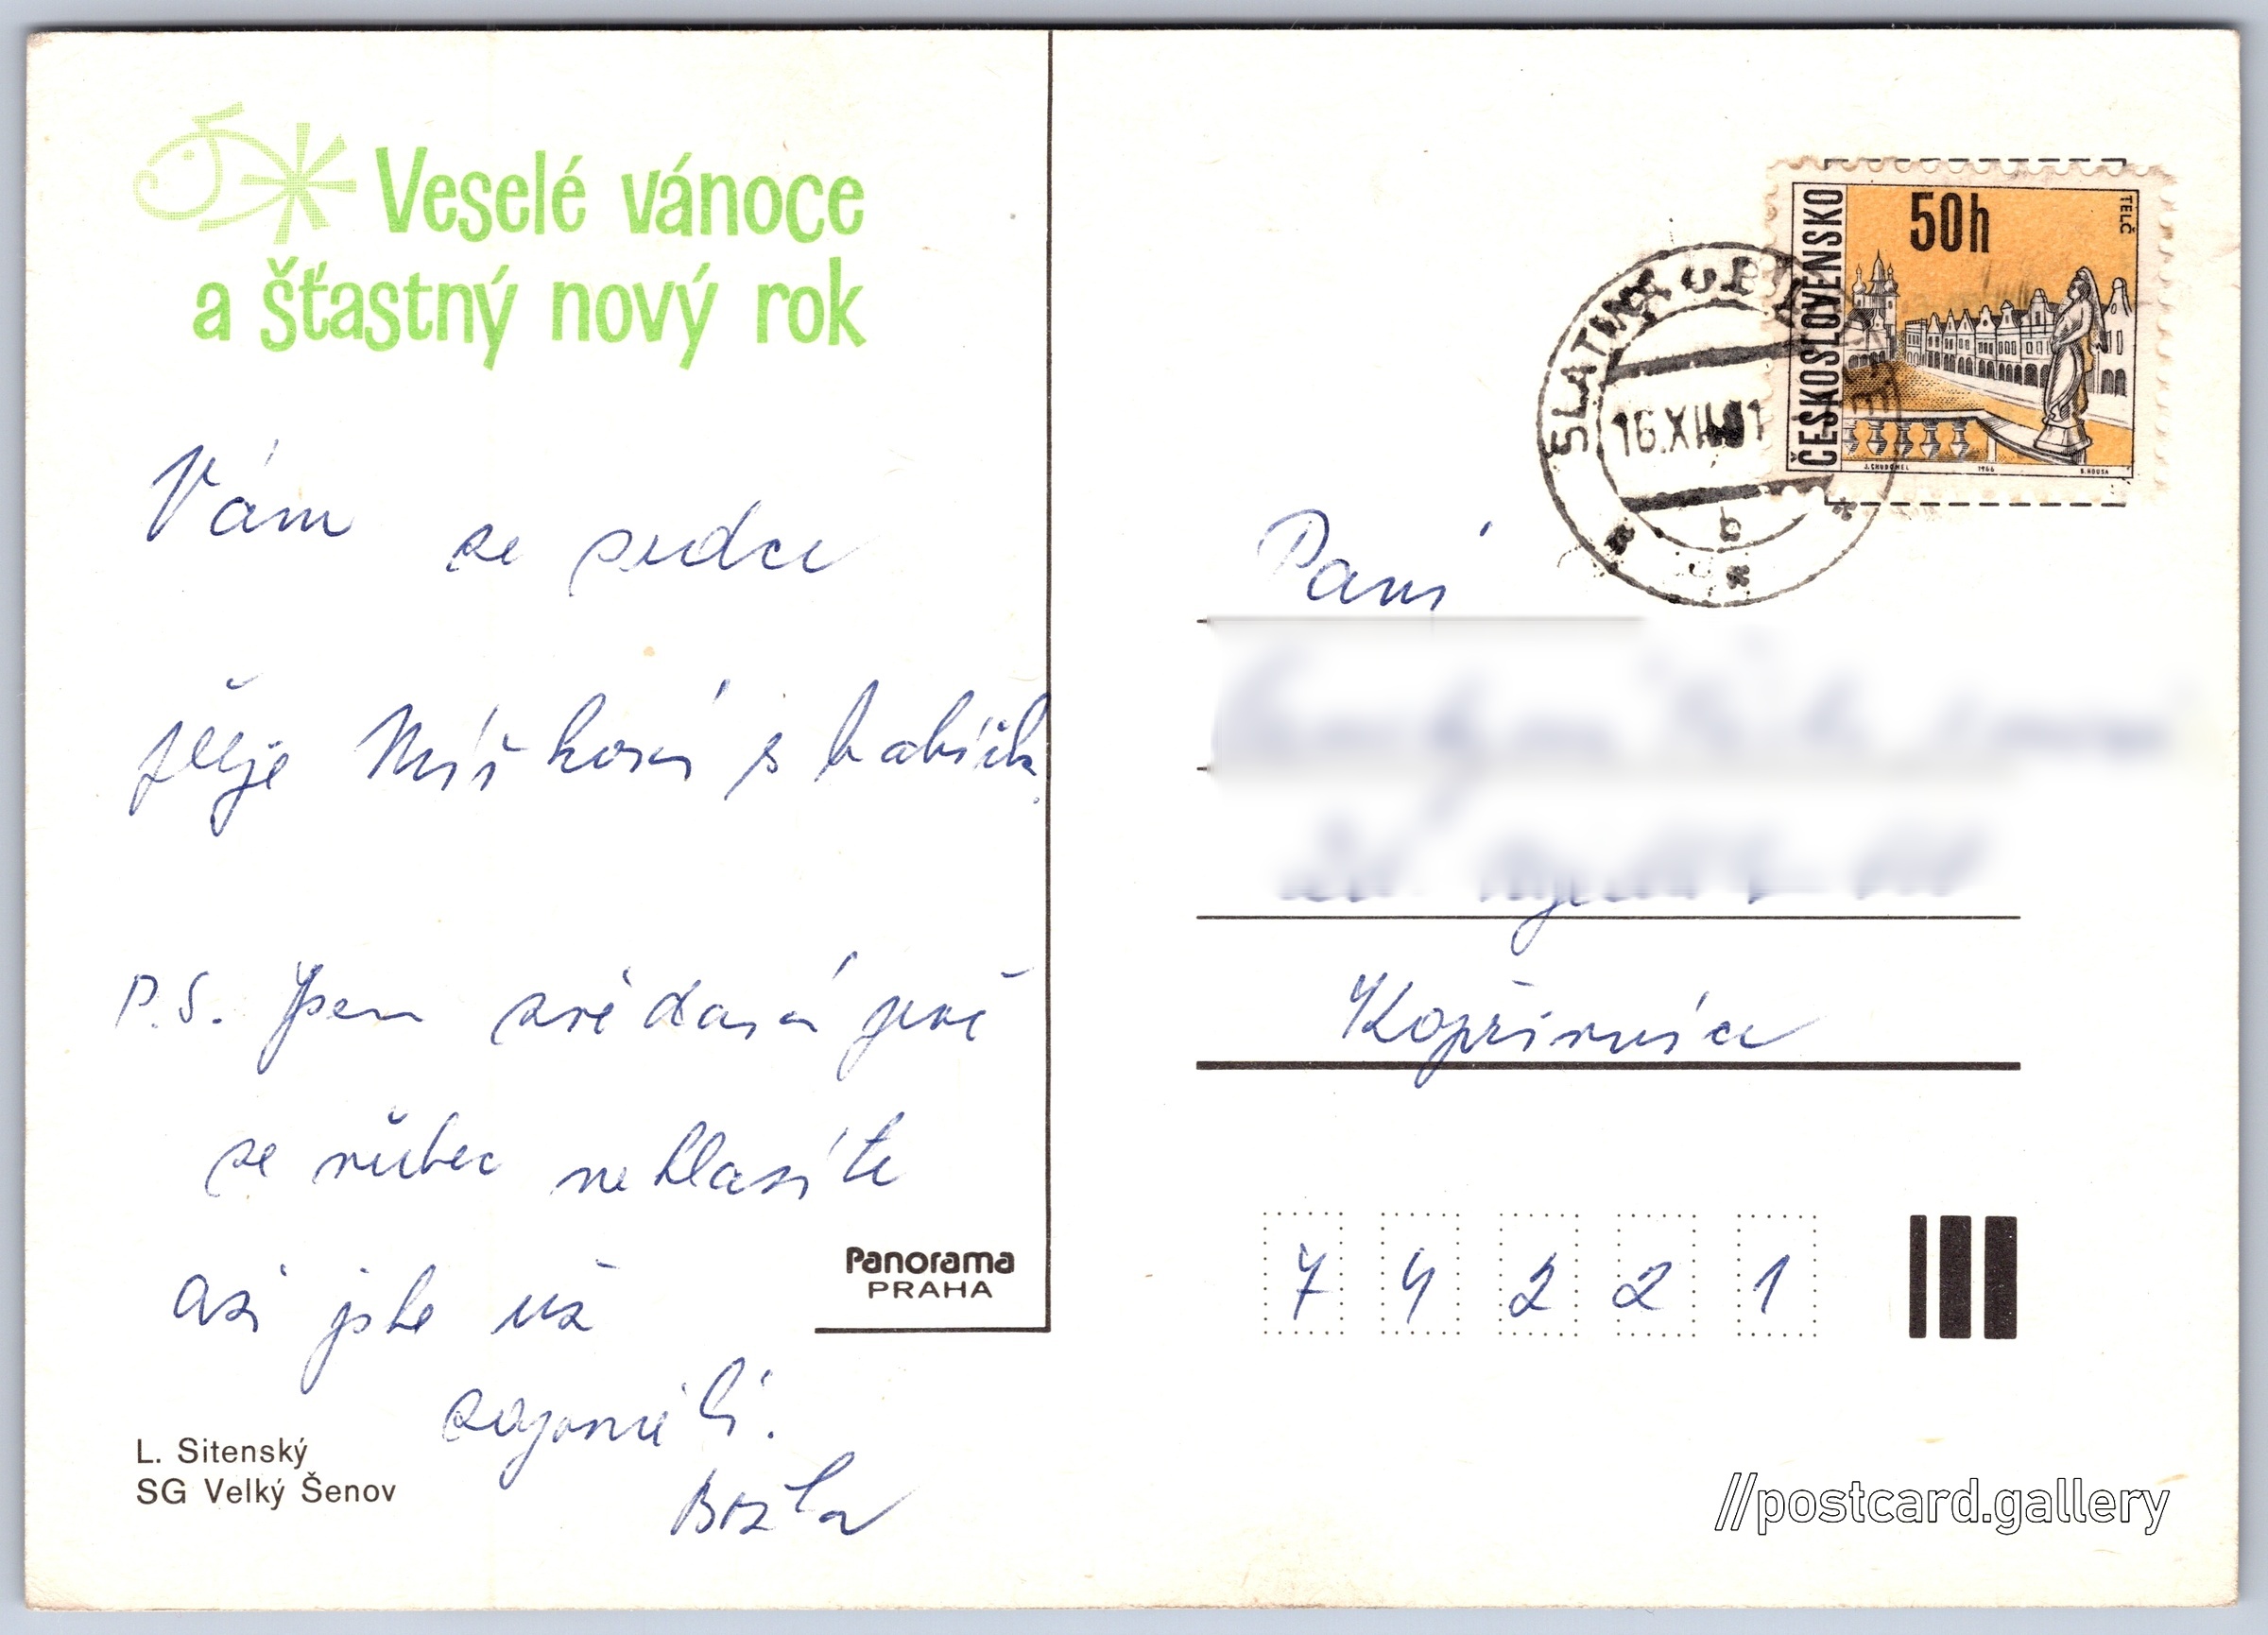 Veselé vánoce
a šťastný nový rok
Vám ze srdce
přeje Míšková s babičk.
P.S. Jsem zvědavá proč
se vůbec nehlasíte
asi jste už
zapoměli.
L. Sitenský
SG Velký Šenov
Panorama
PRAHA
ČESKOSLOVENSKO
50h
TELČ
J. CHUDOMEL 1966 B. HOUSA
SLATINA
16.XII.81
Paní
Kopřivnice
74221
//postcard.gallery